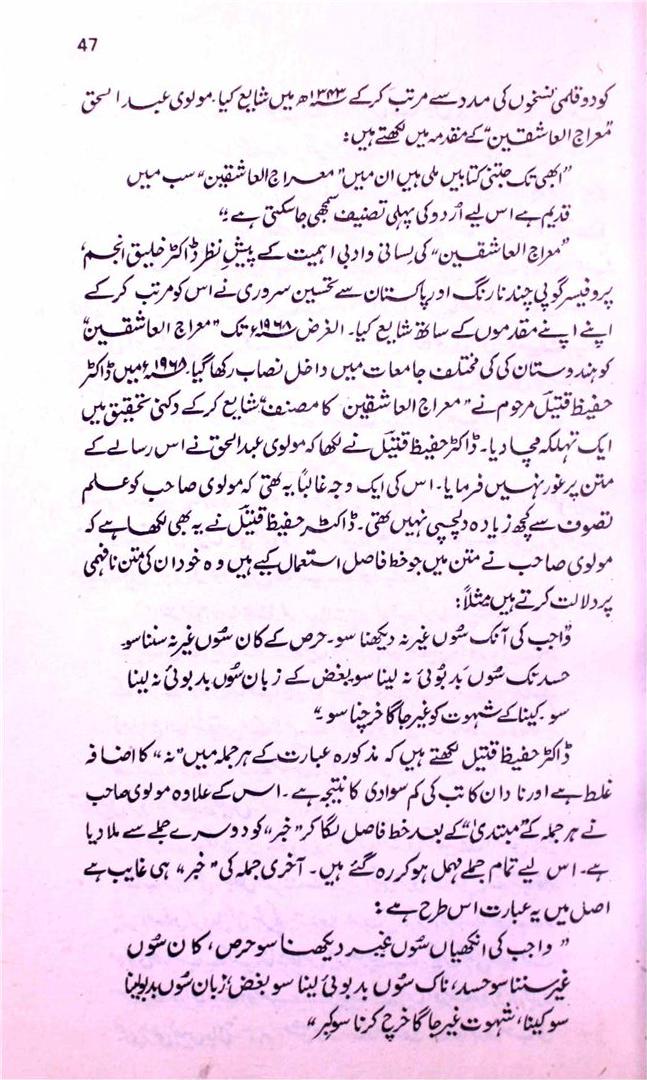 47
کو دو قلمی نسخوں کی مدد سے مرتب کر کے ۱۳۴۳ھ میں شایع کیا۔ مولوی عبدالحق
”معراج العاشقین“ کے مقدمہ میں لکھتے ہیں:
”ابھی تک جتنی کتابیں ملی ہیں ان میں ”معراج العاشقین“ سب میں
قدیم ہے اس لیے اُردو کی پہلی تصنیف سمجھی جاسکتی ہے۔“
”معراج العاشقین“ کی لسانی و ادبی اہمیت کے پیش نظر ڈاکٹر خلیق انجم،
پروفیسر گوپی چند نارنگ اور پاکستان سے تحسین سروری نے اس کو مرتب کر کے
اپنے اپنے مقدموں کے ساتھ شایع کیا۔ الغرض ۱۹۶۸ء تک ”معراج العاشقین“
کو ہندوستان کی کی مختلف جامعات میں داخل نصاب رکھا گیا۔ ۱۹۶۸ء میں ڈاکٹر
حفیظ قتیل مرحوم نے ”معراج العاشقین کا مصنف“ شایع کر کے دکنی تحقیق میں
ایک تہلکہ مچا دیا۔ ڈاکٹر حفیظ قتیل نے لکھا کہ مولوی عبدالحق نے اس رسالے کے
متن پر غور نہیں فرمایا۔ اس کی ایک وجہ غالباً یہ تھی کہ مولوی صاحب کو علم
تصوف سے کچھ زیادہ دلچسپی نہیں تھی۔ ڈاکٹر حفیظ قتیل نے یہ بھی لکھا ہے کہ
مولوی صاحب نے متن میں جو خط فاصل استعمال کیے ہیں وہ خود ان کی متن نافہمی
پر دلالت کرتے ہیں مثلاً:
”واجب کی آنک سُوں غیر نہ دیکھنا سو۔ حرص کے کان سُوں غیر نہ سننا سو
حسد نک سُوں بَدبُوئی نہ لینا سو بغض کے زبان سُوں بدبوئی نہ لینا
سو۔ کینا کے شہوت کو غیر جاگا خرچنا سو۔“
ڈاکٹر حفیظ قتیل لکھتے ہیں کہ مذکورہ عبارت کے ہر جملہ میں ”نہ“ کا اضافہ
غلط ہے اور نادان کاتب کی کم سوادی کا نتیجہ ہے۔ اس کے علاوہ مولوی صاحب
نے ہر جملہ کے ”مبتدیٰ“ کے بعد خط فاصل لگا کر ”خبر“ کو دوسرے جملے سے ملا دیا
ہے۔ اس لیے تمام جملے مہمل ہو کر رہ گئے ہیں۔ آخری جملہ کی ”خبر“ ہی غایب ہے
اصل میں یہ عبارت اس طرح ہے:
”واجب کی انکھیاں سُوں غیر دیکھنا سو حرص، کان سُوں
غیر سننا سو حسد، ناک سُوں بدبوئی لینا سو بغض، زبان سُوں بدبو لینا
سو کینا، شہوت غیر جاگا خرچ کرنا سو کبر“